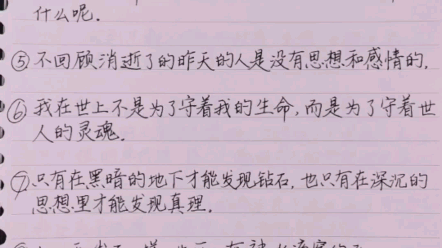 什么呢.
⑤不回顾消逝了的昨天的人是没有思想和感情的.
⑥我在世上不是为了守着我的生命,而是为了守着世
人的灵魂.
⑦只有在黑暗的地下才能发现钻石,也只有在深沉的
思想里才能发现真理.